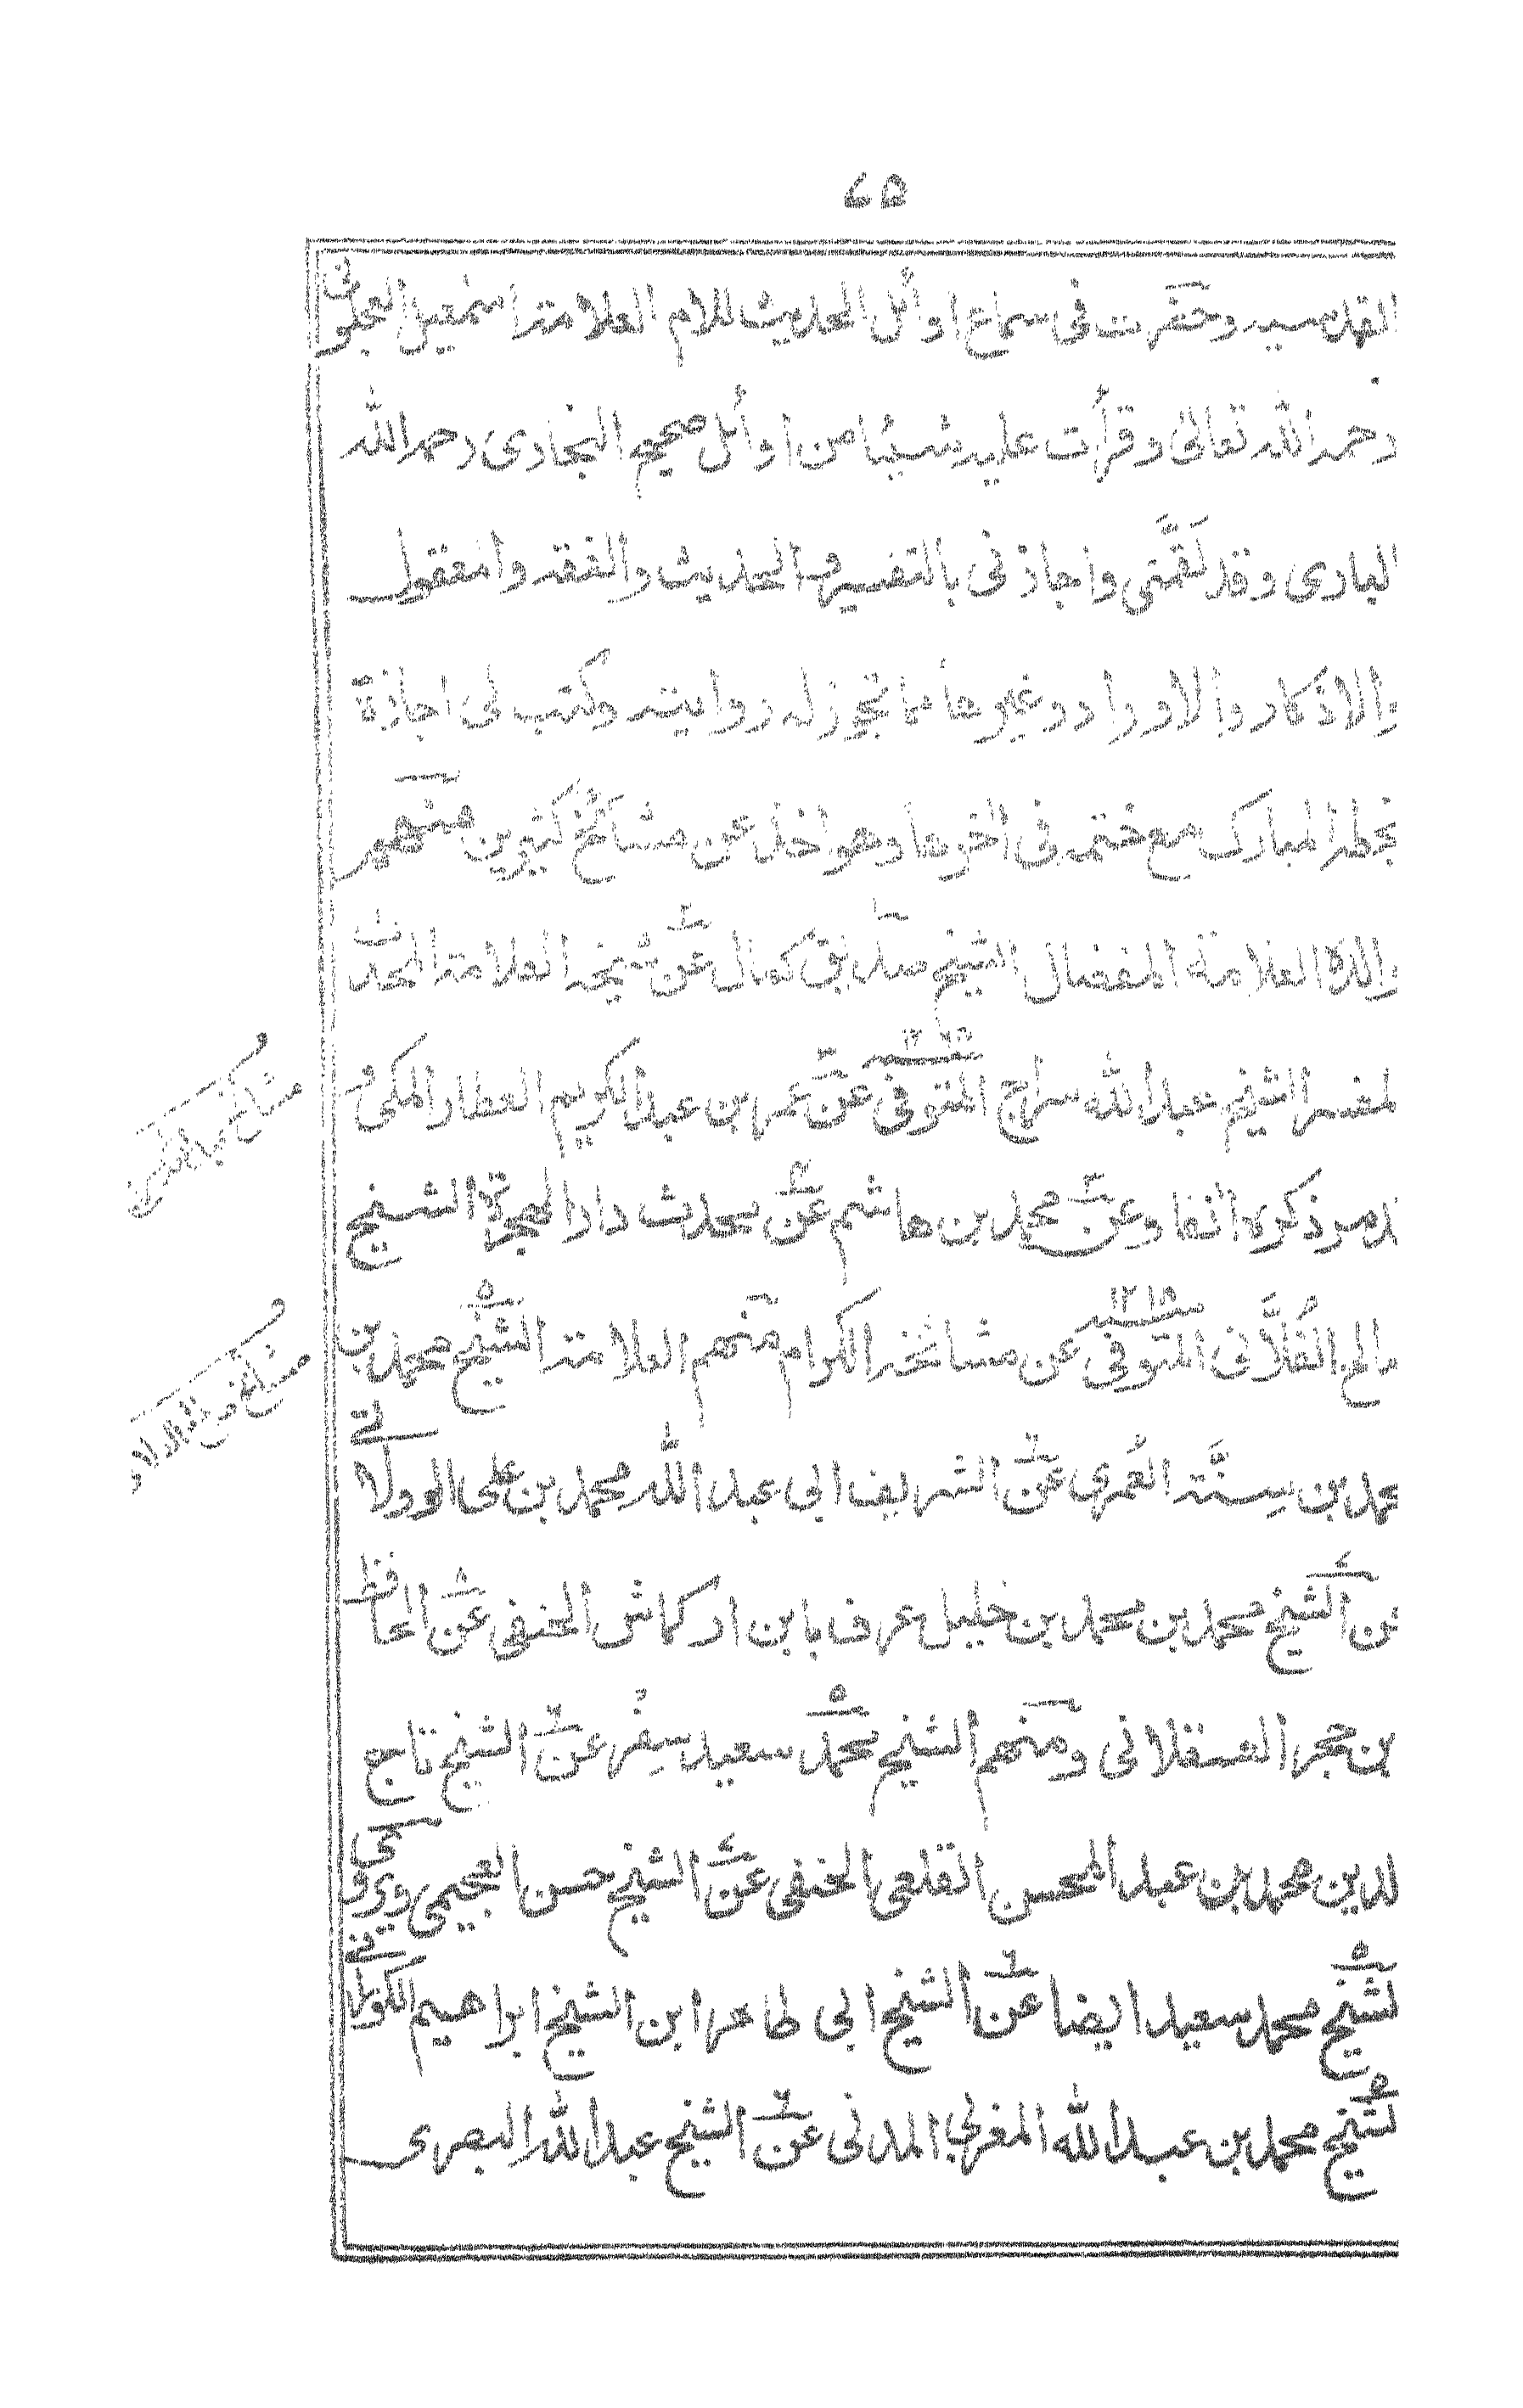 ٧٥
القدسيه وحضرت في سماع اوائل الحديث للامام العلامة اسمعيل العجلوني
رحمه الله تعالى وقرأت عليه شيئا من اوائل صحيح البخاري رحمه الله
الباري وقد لقَّمَني واجازني بالتفسير والحديث والفقه والمعقول
والاذكار والاوراد وغيرها مما تجوز له روايته وكتب لي اجازة
بخطه المبارك مع ختمه في اخرها وهو اخذ عن مشائخ كثيرين منهم
والده العلامة المفضال الشيخ صديق كمال عن شيخه العلامة المحدث
لمفسر الشيخ عبد الله سراج المتوفى ١٢٦٥ عن عمر بن عبد الكريم العطار المكي
مر ذكره انفا وعن محمد بن هاشم عن محدث دار الهجرة الشيخ
صالح الفُلَّاني المتوفى ١٢١٨ عن مشائخه الكرام منهم العلامة الشيخ محمد بن
محمد بن سِنَّة العُمري عن الشريف ابي عبد الله محمد بن علي الوولاتي
عن الشيخ محمد بن محمد بن خليل عرف بابن اركماش الحنفي عن الحافظ
بن حجر العسقلاني ومنهم الشيخ محمد سعيد سفر عن الشيخ تاج
لدين محمد بن عبد المحسن القلعي الحنفي عن الشيخ حسن العجيمي ويروي
لشيخ محمد سعيد ايضا عن الشيخ ابي طاهر ابن الشيخ ابراهيم الكوراني
لشيخ محمد بن عبد الله المغربي المدني عن الشيخ عبد الله البصري
مشائخ
مشائخ